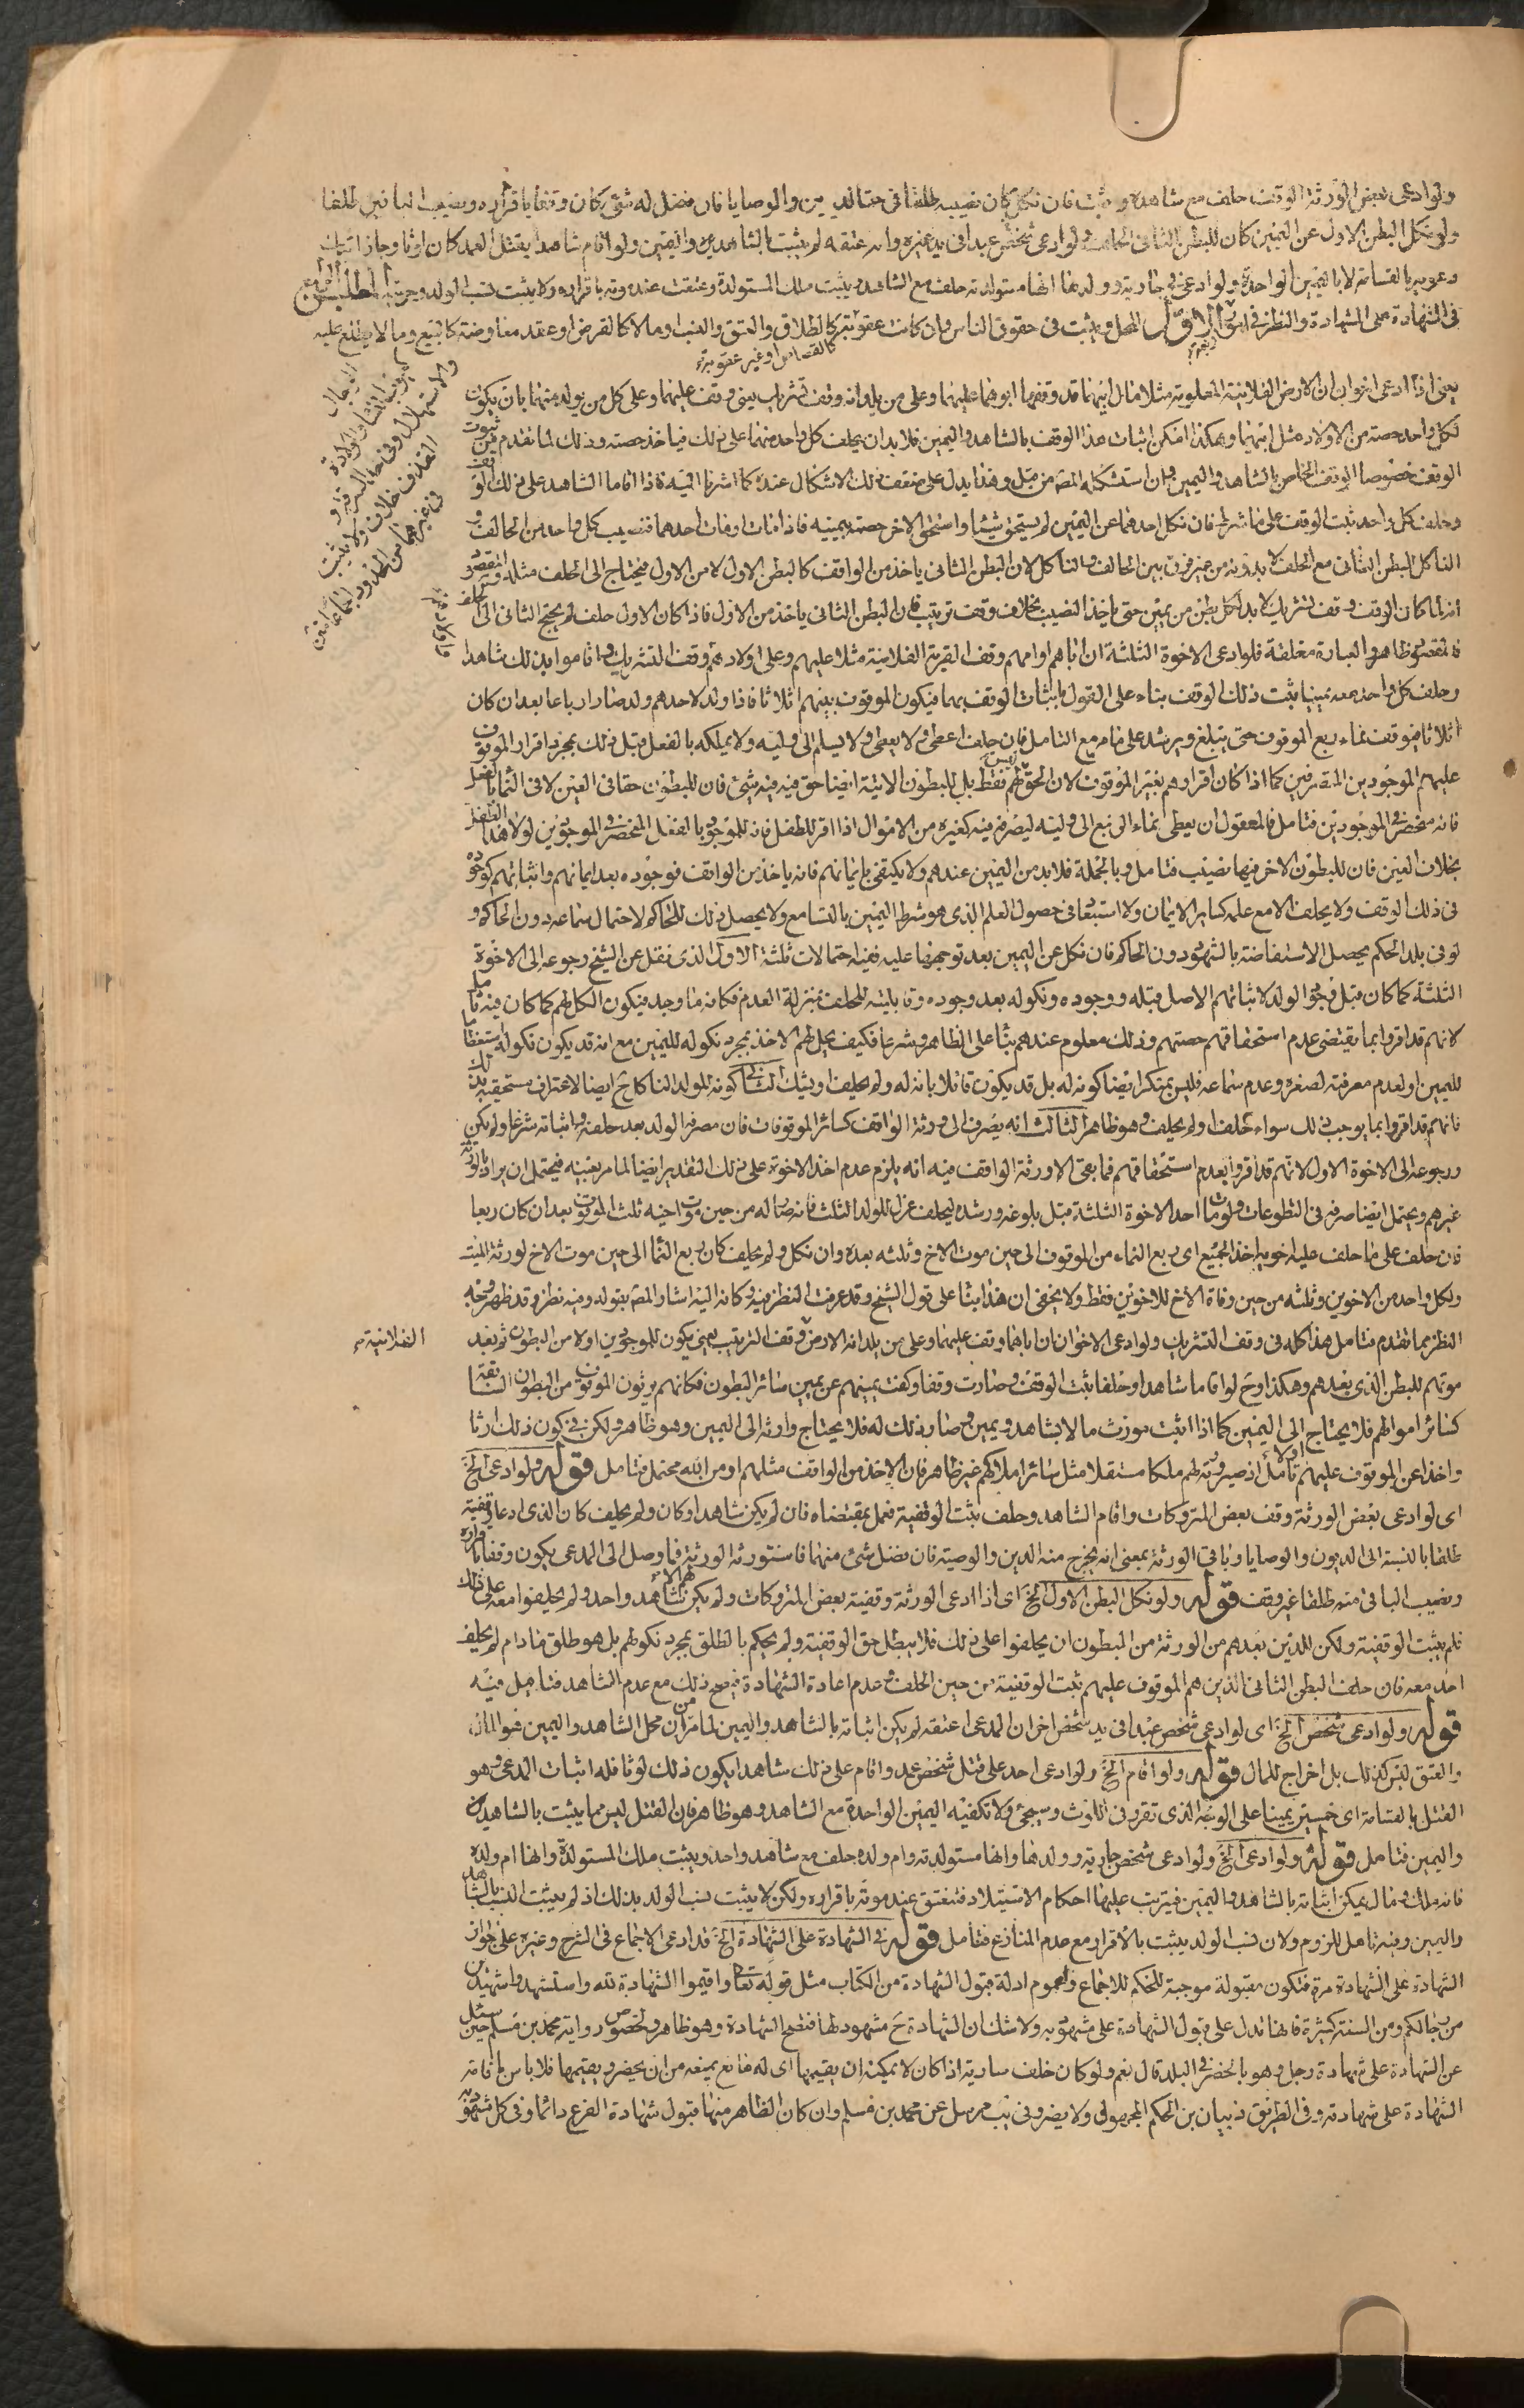 ولو ادعى بعض الورثة الوقف حلف مع شاهده وثبت فان نكل كان نصيبه طلقا فى حق الديون والوصايا فان فضل له شئ كان وقفا باقراره ونصيب الباقين طلقا
ولو نكل البطن الاول عن اليمين كان للبطن الثانى الحلف ولو ادعى شخص عبدا فى يد غيره وانه عتقه لم يثبت بالشاهد واليمين ولو اقام شاهدا بقتل العمد كان لوثا وجاز اثبات
دعويه بالقسامة لا باليمين الواحدة ولو ادعى جارية وولدها انها مستولدته حلف مع الشاهد ويثبت ملك المستولدة وعتقت عند موته باقراره ولا يثبت نسب الولد وحريته المطلب
فى الشهادة على الشهادة والنظر فى امور الاول المحل ويثبت فى حقوق الناس وان كانت عقوبة كالقصاص او غير عقوبة كالطلاق والعتق والنسب او مالا كالقرض او عقد معاوضة كالبيع وما لا يطلع عليه
الرجال
كعيوب النساء والولادة
والاستهلال وفى حد السرقة و
القذف خلاف ولا يثبت
فى غيرهما من الحدود اجماعا
يعنى اذا ادعى اخوان ان الارض الفلانية المعلومة مثلا قد وقفها ابوهما عليهما وعلى من يلدانه وقف تشريك يعنى وقف عليهما وعلى كل من يولد منهما بان يكون
لكل واحد حصته من الاولاد مثل ابيهما وهكذا امكن اثبات هذا الوقف بالشاهد واليمين فلا بد ان يحلف كل واحد منهما على ذلك فياخذ حصته وذلك لما تقدم من ثبوت
الوقف خصوصا الوقف الخاص بالشاهد واليمين وان استشكله المص من قبل وهذا يدل على ضعف ذلك الاشكال عنده كما اشرنا اليه فاذا اقاما الشاهد على ذلك الوقف
وحلف كل واحد ثبت الوقف على ما شرط فان نكل احدهما عن اليمين لم يستحق شيئا واستحق الاخر حصته بيمينه فاذا ماتا او مات احدهما فنصيب كل واحد من الحالف و
الناكل للبطن الثانى مع الحلف لا بدونه من غير فرق بين الحالف والناكل لان البطن الثانى ياخذ من الواقف كالبطن الاول لا من الاول فيحتاج الى الحلف مثله والمقصود
انه لما كان الوقف وقف تشريك لا بد لكل بطن من يمين حتى ياخذ النصيب بخلاف وقف ترتيب فان البطن الثانى ياخذ من الاول فاذا كان الاول حلف لم يحتج الثانى الى الحلف
فالمقصود ظاهر والعبارة مغلقة فلو ادعى الاخوة الثلثة ان اباهم او امهم وقف القرية الفلانية مثلا عليهم وعلى اولادهم وقف التشريك واقاموا بذلك شاهدا
وحلف كل واحد معه يمينا ثبت ذلك الوقف بناء على القول باثبات الوقف بهما فيكون الموقوف بينهم اثلاثا فاذا ولد لاحدهم ولد صار ارباعا بعد ان كان
اثلاثا فيوقف نماء ربع الموقوف حتى يبلغ ويرشد على ما مر مع التامل فان حلف اعطى والا لا يعطى ولا يسلم الى وليه ولا يملكه بالفعل قبل ذلك بمجرد اقرار الموقوف
عليهم الموجودين المقرين كما اذا كان اقرارهم بغير الموقوف لان الحق ليس لهم فقط بل للبطون الاتية ايضا حق فيه شئ فان للبطون حقا فى العين لا فى النماء
فانه منحصر فى الموجودين فتامل فالمعقول ان يعطى نماء الربع الى وليه ليصرفه فيه كغيره من الاموال اذا اقر للطفل فانه للموجود بالفعل المنحصر فى الموجودين لولا هذا الطفل
بخلاف العين فان للبطون الاخر فيها نصيب فتامل وبالجملة فلا بد من اليمين عندهم ولا يكتفى بايمانهم فانه ياخذ من الواقف فوجوده بعد ايمانهم واثباتهم كوجوده
فى ذلك الوقف ولا يحلف الا مع علمه كساير الايمان ولا استبعاد فى حصول العلم الذى هو شرط اليمين بالتسامع ولا يحصل ذلك للحاكم لاحتمال سماعه دون الحاكم و
لو فى بلد الحكم يحصل الاستفاضة بالشهود دون الحاكم فان نكل عن اليمين بعد توجهها عليه ففيه احتمالات ثلثة الاول الذى نقل عن الشيخ رجوعه الى الاخوة
الثلثة كما كان قبل وجود الولد لاثباتهم الاصل قبله ووجوده ونكوله بعد وجوده وقابليته للحلف بمنزلة العدم فكانه ما وجد فيكون الكل لهم كما كان فيه تامل
لانهم قد اقروا بما يقتضى عدم استحقاقهم حصتهم وذلك معلوم عندهم بناء على الظاهر وشرعا فكيف يحل لهم الاخذ بمجرد نكوله لليمين مع انه قد يكون نكوله استعظاما
لليمين او لعدم معرفته لصغره وعدم سماعه فليس بمنكر ايضا كونه له بل قد يكون قائلا بانه له ولم يحلف او يشك الثانى كونه للولد الناكل ح ايضا لاعتراف مستحقيه بذلك
فانهم قد اقروا بما يوجب ذلك سواء حلف او لم يحلف وهو ظاهر الثالث انه يصرف الى ورثة الواقف كسائر الموقوفات فان مصرفه الولد بعد حلفه واثباته شرعا ولم يكن
ورجوعه الى الاخوة الاول لانهم قد اقروا بعدم استحقاقهم فما بقى الا ورثة الواقف فيه انه يلزم عدم اخذ الاخوة على ذلك التقدير ايضا لما مر بعينه فيحتمل ان يراد بالورثة
غيرهم ويحتمل ايضا صرفه فى التطوعات ولو مات احد الاخوة الثلثة قبل بلوغه ورشده ليحلف عزل للولد الثلث فانه صار له من حين موت اخيه ثلث الموقوف بعد ان كان ربعا
فان حلف على ما حلف عليه اخويه اخذ الجميع اى ربع النماء من الموقوف الى حين موت الاخ وثلثه بعده وان نكل ولم يحلف كان ربع النماء الى حين موت الاخ لورثة الميت
ولكل واحد من الاخوين وثلثه من حين وفاة الاخ للاخوين فقط ولا يخفى ان هذا بناء على قول الشيخ وقد عرفت النظر فيه وكانه اليه اشار المص بقوله وفيه نظر وقد ظهر وجه
النظر بما تقدم فتامل هذا كله فى وقف التشريك ولو ادعى الاخوان ان اباهما وقف عليهما وعلى من يلدانه الارض الفلانية وقف الترتيب بمعنى يكون للموجودين اولا من البطون ثم بعد
موتهم للبطن الذى بعدهم وهكذا وح لو اقاما شاهدا وحلفا ثبت الوقف وصارت وقفا وكفت يمينهم عن يمين سائر البطون فكانهم يرثون الموقوف من البطون السابقة
كسائر اموالهم فلا يحتاج الى اليمين كما اذا اثبت مورث مالا بشاهد ويمين وصار ذلك له فلا يحتاج وارثه الى اليمين وهو ظاهر ولكن فى كون ذلك ارثا
واخذا عن الموقوف عليهم اولا تامل اذ صيرورته لهم ملكا مستقلا مثل سائر املاكهم غير ظاهر فان الاخذ من الواقف مثلهم او من الله محتمل فتامل قوله ولو ادعى الخ
اى لو ادعى بعض الورثة وقف بعض المتروكات واقام الشاهد وحلف يثبت الوقفية فعمل بمقتضاه فان لم يكن شاهد او كان ولم يحلف كان الذى ادعا وقفيته
طلقا بالنسبة الى الديون والوصايا وباقى الورثة بمعنى انه يخرج منه الدين والوصية فان فضل شئ منهما فاستورثه الورثة فما وصل الى المدعى يكون وقفا باقراره
ونصيب الباقى منه طلقا غير وقف قوله ولو نكل البطن الاول الخ اى اذا ادعى الورثة وقفية بعض المتروكات ولم يكن لهم الا شاهد واحد ولم يحلفوا معه على ذلك
فلم يثبت الوقفية ولكن للذين بعدهم من الورثة من البطون ان يحلفوا على ذلك فلا يبطل حق الوقفية ولم يحكم بالطلق بمجرد نكولهم بل هو طلق مادام لم يحلف
احد معه فان حلف البطن الثانى الذين هم الموقوف عليهم ثبت الوقفية من حين الحلف وعدم اعادة الشهادة فيصح ذلك مع عدم الشاهد فتامل فيه
قوله ولو ادعى شخص الخ اى لو ادعى شخص عبدا فى يد شخص اخر ان المدعى اعتقه لم يكن اثباته بالشاهد واليمين لما مر من ان محل الشاهد واليمين هو المال
والعتق ليس كذلك بل اخراج للمال قوله ولو اقام الخ ولو ادعى احد على قتل شخص عمدا واقام على ذلك شاهدا يكون ذلك لوثا فله اثبات المدعى وهو
القتل بالقسامة اى خمسين يمينا على الوجه الذى تقرر فى اللوث وسيجئ ولا تكفيه اليمين الواحدة مع الشاهد وهو ظاهر فان القتل ليس مما يثبت بالشاهد
واليمين فتامل قوله ولو ادعى الخ ولو ادعى شخص جارية وولدها وانها مستولدته وام ولده حلف مع شاهد واحد ويثبت ملك المستولدة وانها ام ولده
فانه ملك ومال يمكن اثباته بالشاهد واليمين فيترتب عليها احكام الاستيلاد فتنعتق عند موته باقراره ولكن لا يثبت نسب الولد بذلك اذ لم يثبت النسب بالشاهد
واليمين وفيه تامل للزوم ولان نسب الولد يثبت بالاقرار مع عدم المنازع فتامل قوله فى الشهادة على الشهادة الخ قد ادعى الاجماع فى الشرح وغيره على جواز
الشهادة على الشهادة مرة فتكون مقبولة موجبة للحكم للاجماع ولعموم ادلة قبول الشهادة من الكتاب مثل قوله تعا واقيموا الشهادة لله واستشهدوا شهيدين
من رجالكم ومن السنة كثيرة فانها تدل على قبول الشهادة على مشهود به ولا شك ان الشهادة ح مشهود لها فتصح الشهادة وهو ظاهر ولخصوص رواية محمد بن مسلم حين سئل
عن الشهادة على شهادة رجل وهو بالحضر فى البلد قال نعم ولو كان خلف سارية اذا كان لا يمكنه ان يقيمها اى له مانع يمنعه من ان يحضر ويقيمها فلا باس باقامة
الشهادة على شهادته وفى الطريق ذبيان بن الحكم المجهول ولا يضر وفى مرسل عن محمد بن مسلم وان كان الظاهر منها قبول شهادة الفرع دائما وفى كل مشهود